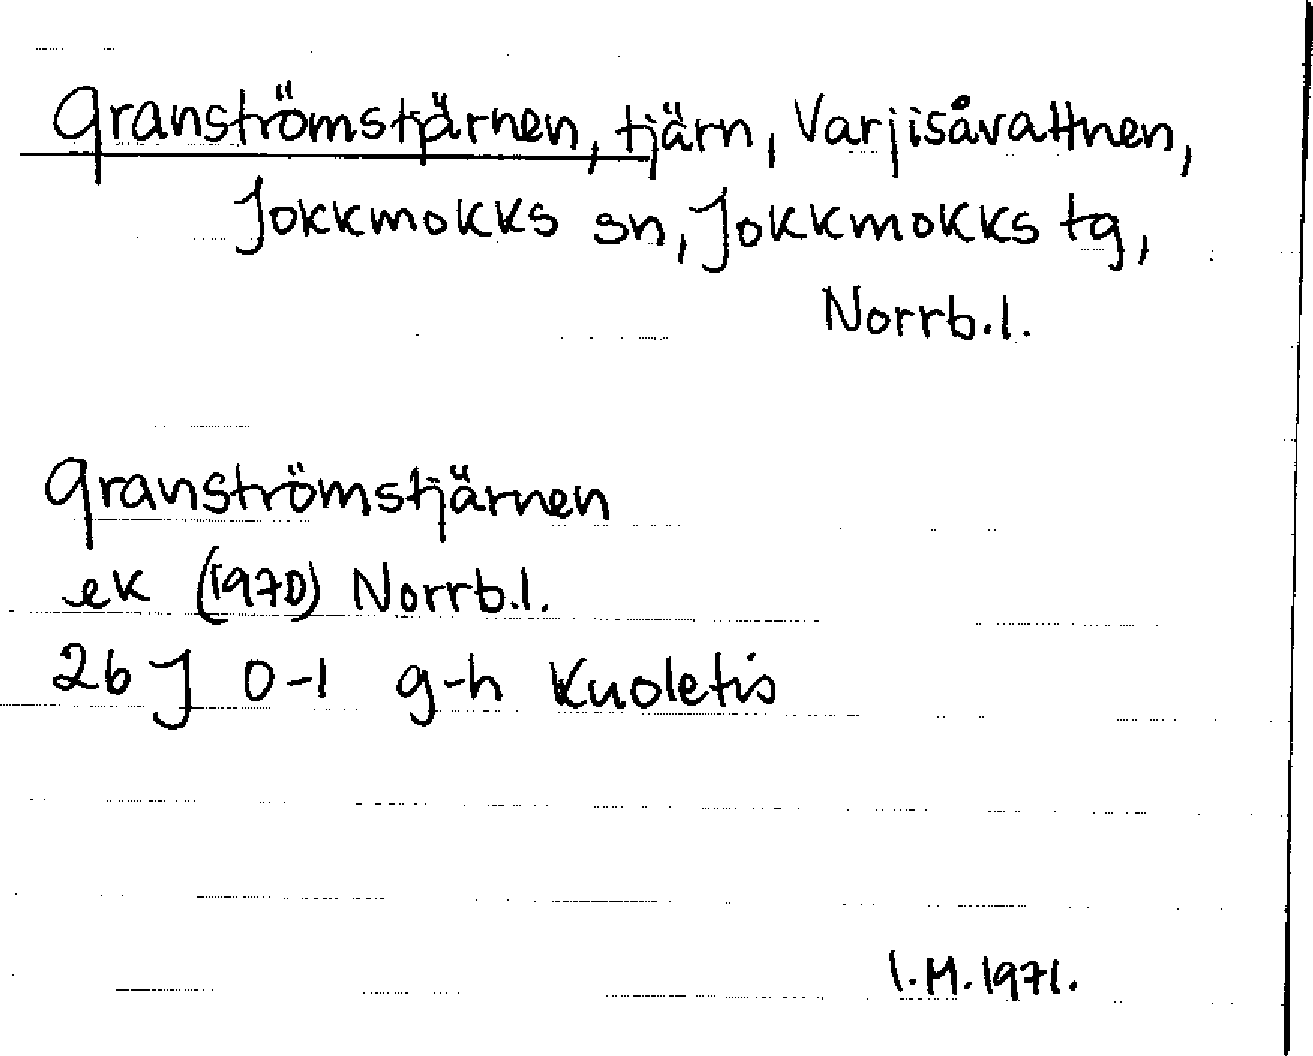 Granströmstjärnen, tjärn, Varjisåvattnen,
Jokkmokks sn, Jokkmokks tg,
Norrb.l.
Granströmstjärnen
ek (1970) Norrb.l.
26 J 0-1 g-h Kuoletis
I.M. 1971.